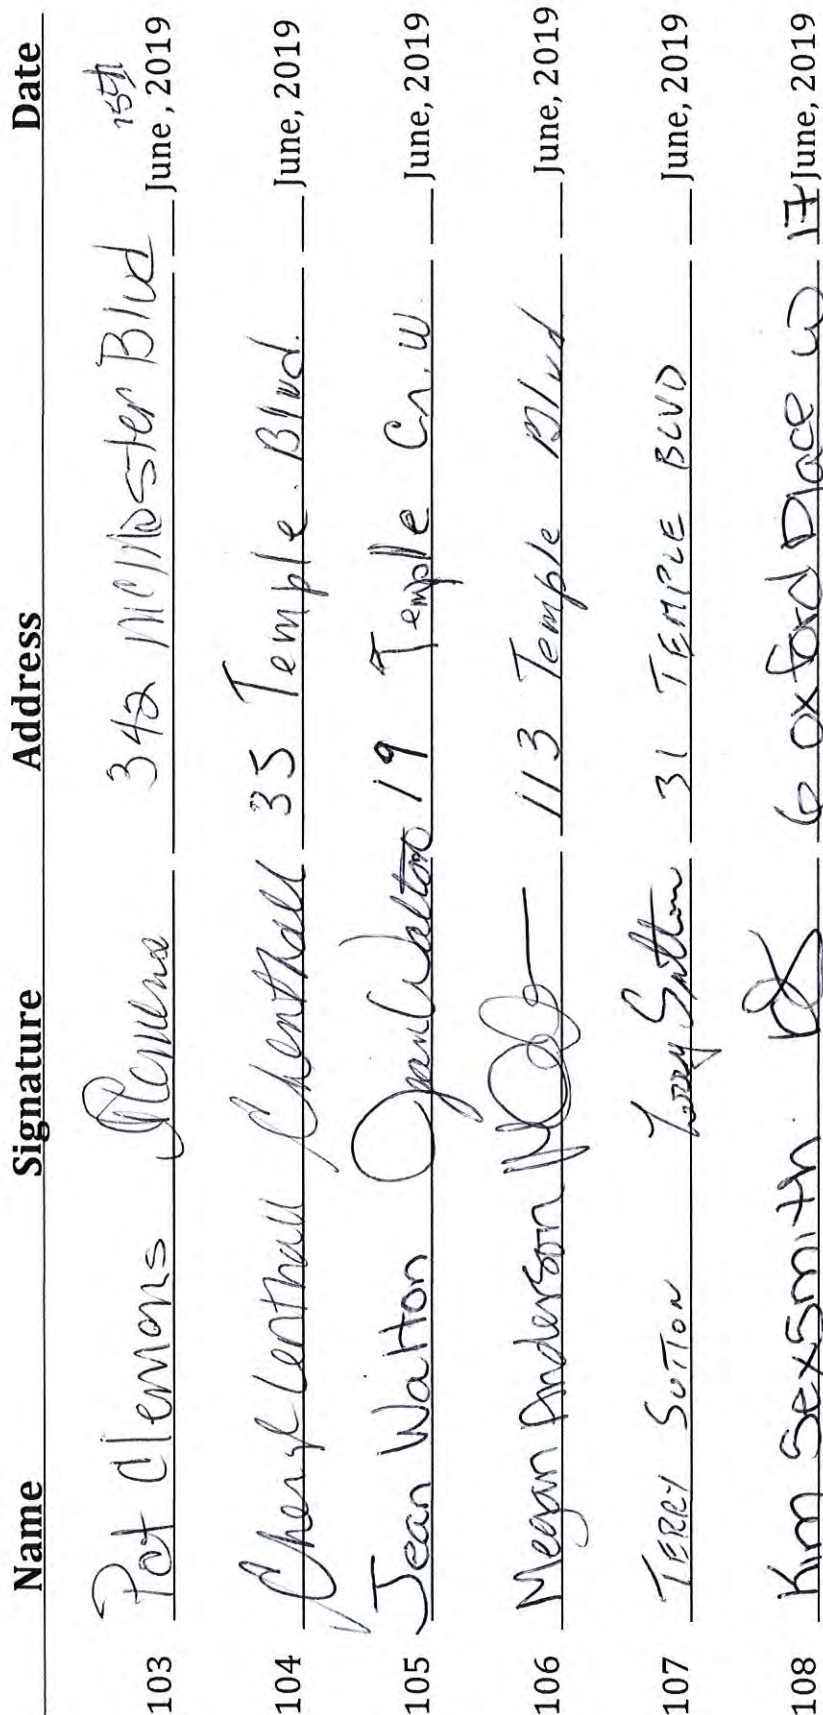 Name Signature Address Date
103 Pat Clemons Clemens 342 McMaster Blvd 15th June, 2019
104 Cheryl Lenthall CLenthall 35 Temple Blvd. June, 2019
105 Jean Walton Jean Walton 19 Temple Cr. W. June, 2019
106 Megan Anderson 113 Temple Blvd June, 2019
107 TERRY SUTTON Terry Sutton 31 TEMPLE BLVD June, 2019
108 Kim Sexsmith KS 6 Oxford Place W 17 June, 2019